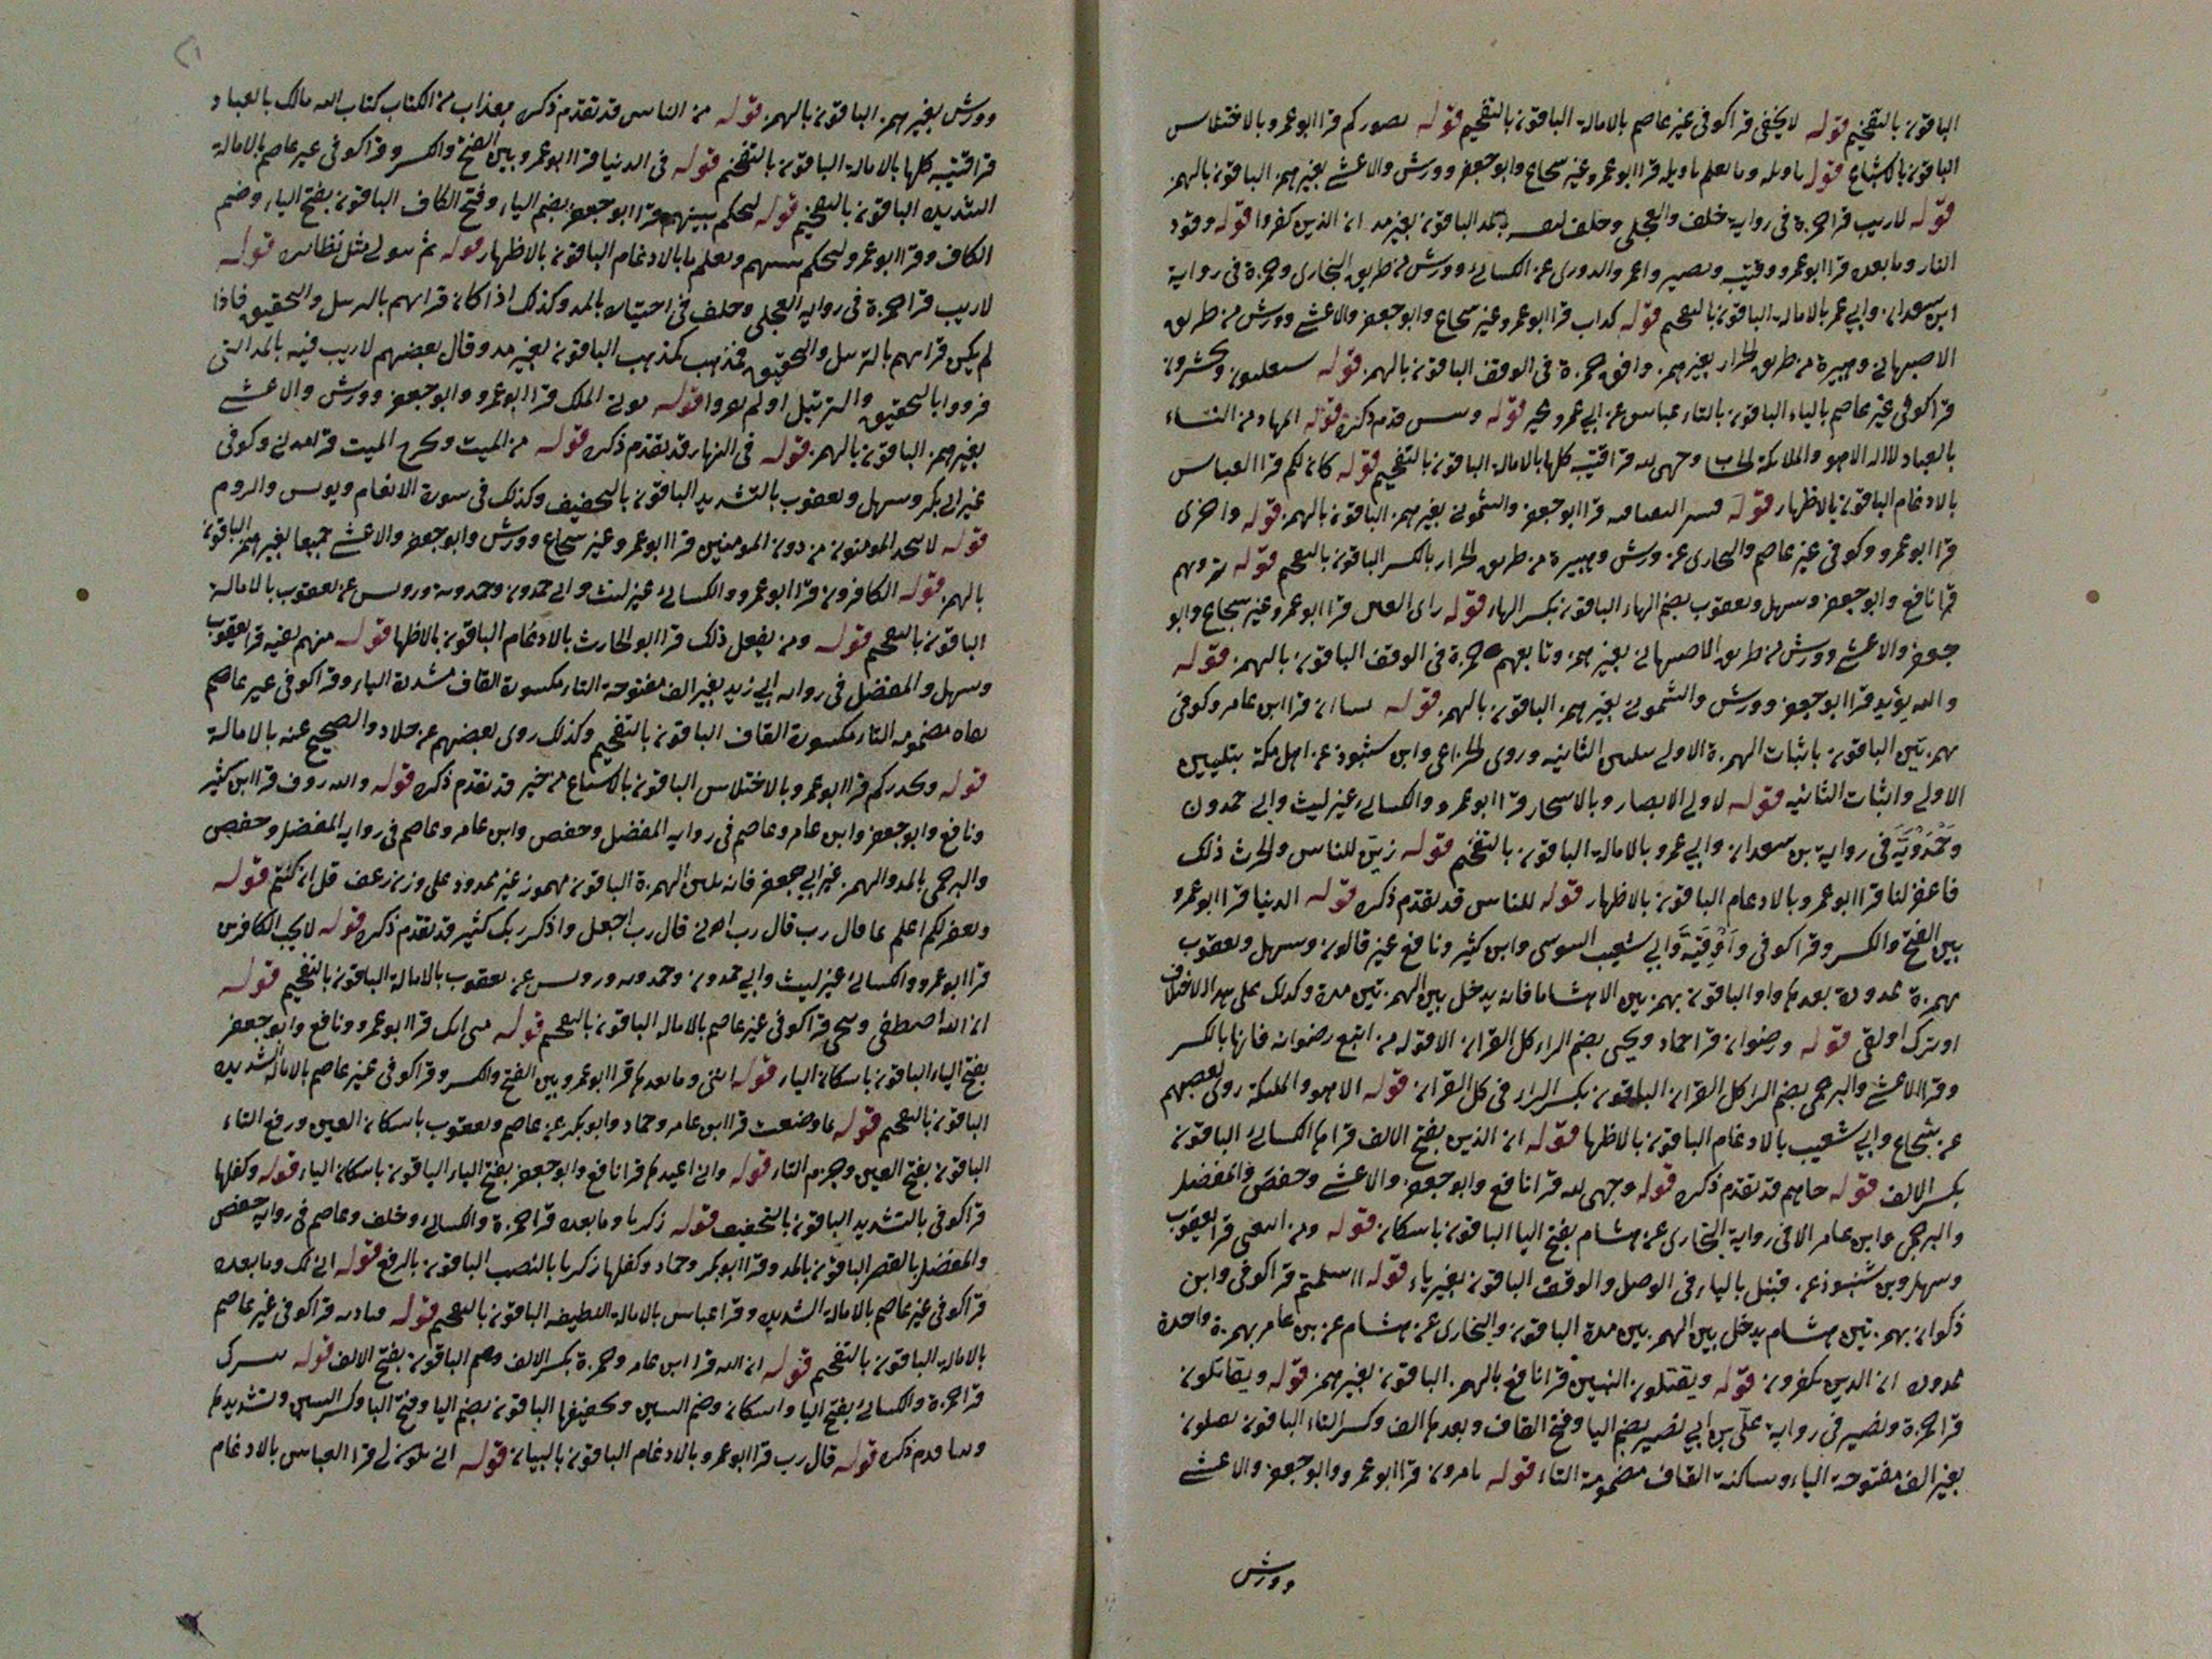 الباقون بالتفخيم قوله لا يخفى قرا كوفى غير عاصم بالامالة الباقون بالتفخيم قوله يصوركم قرا ابو عمرو بالاختلاس
الباقون بالاشباع قوله تاويله وما يعلم تاويله قرا ابو عمرو غير سجاع وابو جعفر وورش والاعشى بغير همز الباقون بالهمز
قوله لا ريب قرا حمزة فى رواية خلف والعجلى وخلف لنفسه بالمد الباقون بغير مد ان الذين كفروا قوله وقود
النار وما بعده قرا ابو عمرو وقتيبه ونصير وابو عمر والدورى عن الكسائى وورش من طريق البخارى وحمزة فى رواية
ابن سعدان وابى عمر بالامالة الباقون بالتفخيم قوله كداب قرا ابو عمرو غير سجاع وابو جعفر والاعشى وورش من طريق
الاصبهانى وهبيرة من طريق الخراز بغير همز وافق حمزة فى الوقف الباقون بالهمز قوله سيغلبون ويحشرون
قرا كوفى غير عاصم بالياء الباقون بالتاء عباس عن ابى عمرو مخير قوله وبئس قدم ذكره قوله المهاد من النساء
بالعباد لا اله الا هو والملائكة وجهى لله قرا قتيبه كلها بالامالة الباقون بالتفخيم قوله كان لكم قرا العباس
بالادغام الباقون بالاظهار قوله قرا ابو جعفر والشمونى بغير همز الباقون بالهمز قوله واخرى
قرا ابو عمرو وكوفى غير عاصم والبخارى عن ورش وهبيرة من طريق الخراز بالكسر الباقون بالتفخيم قوله ترونهم
قرا نافع وابو جعفر وسهل ويعقوب بضم الهاء الباقون بكسر الهاء قوله راى العين قرا ابو عمرو غير سجاع وابو
جعفر والاعشى وورش من طريق الاصبهانى بغير همز وتابعهم حمزة فى الوقف الباقون بالهمز قوله
والله يؤيد قرا ابو جعفر وورش والشمونى بغير همز الباقون بالهمز قوله قرا ابن عامر وكوفى
بهمزتين الباقون باثبات الهمزة الاولى تليين الثانيه وروى الخزاعى وابن شنبوذ عن اهل مكة بتليين
الاولى واثبات الثانيه قوله لاولى الابصار وبالاسحار قرا ابو عمرو والكسائى غير ليث وابى حمدون
وحمدويه فى رواية بن سعدان وابى عمرو بالامالة الباقون بالتفخيم قوله زين للناس والحرث ذلك
فاغفر لنا قرا ابو عمرو بالادغام الباقون بالاظهار قوله للناس قد تقدم ذكره قوله الدنيا قرا ابو عمرو
بين الفتح والكسر وقرا كوفى وابى شعيب السوسى وابن كثير ونافع غير قالون وسهل ويعقوب
بهمزة ممدودة بعدها واو الباقون بهمزتين الا هشاما فانه يدخل بين الهمزتين مدة وكذلك على هذا الاختلاف
قوله ورضوان قرا حماد ويحيى بضم الراء كل القران الا قوله من اتبع رضوانه فانها بالكسر
وقرا الاعشى والبرجمى بضم الرا كل القران الباقون بكسر الراء فى كل القران قوله الا هو والملئكة روى بعضهم
عن شجاع وابى شعيب بالادغام الباقون بالاظهار قوله ان الذين بفتح الالف قراها الكسائى الباقون
بكسر الالف قوله جاءهم قد تقدم ذكره قوله وجهى لله قرا نافع وابو جعفر والاعشى وحفص والمفضل
والبرجمى وابن عامر الا فى رواية البخارى عن هشام بفتح اليا الباقون باسكان قوله ومن اتبعنى قرا يعقوب
وسهل وبن شنبوذ عن قنبل بالياء فى الوصل والوقف الباقون بغير ياء قوله ااسلمتم قرا كوفى وابن
ذكوان بهمزتين هشام يدخل بين الهمزتين مدة الباقون والبخارى عن هشام عن بن عامر بهمزة واحدة
ممدودة ان الذين يكفرون قوله ويقتلون النبيين قرا نافع بالهمز الباقون بغير همز قوله ويقاتلون
قرا حمزة ونصير فى رواية على بن ابى نصير بضم اليا وفتح القاف وبعدها الف وكسر التاء الباقون يقتلون
بغير الف مفتوحة الياء وساكنة القاف مضمومة التاء قوله يامرون قرا ابو عمرو وابو جعفر والاعشى
وورش
وورش بغير همز الباقون بالهمز قوله من الناس قد تقدم ذكره بعذاب من الكتاب كتاب الله مالك بالعباد
قرا قتيبه كلها بالامالة الباقون بالتفخيم قوله فى الدنيا قرا ابو عمرو بين الفتح والكسر وقرا كوفى غير عاصم بالامالة
الشديده الباقون بالتفخيم قوله ليحكم بينهم قرا ابو جعفر بضم الياء وفتح الكاف الباقون بفتح الياء وضم
الكاف وقرا ابو عمرو ليحكم بينهم ويعلم ما بالادغام الباقون بالاظهار قوله ثم يتولى مثل نظائره قوله
لا ريب قرا حمزة فى رواية العجلى وخلف فى اختياره بالمد وكذلك اذا كان قرانهم بالترسل والتحقيق فاذا
لم يكن قرانهم بالترسل والتحقيق فمذهب كمذهب الباقون بغير مد وقال بعضهم لا ريب فيه بالمد التى
قرووا بالتحقيق والترتيل او لم يقرووا قوله تؤتى الملك قرا ابو عمرو وابو جعفر وورش والاعشى
بغير همز الباقون بالهمز قوله فى النهار قد تقدم ذكره قوله من الميت ويخرج الميت قرا مدنى وكوفى
غير ابى بكر وسهل ويعقوب بالتشديد الباقون بالتخفيف وكذلك فى سورة الانعام ويونس والروم
قوله لا يتخذ المومنون من دون المومنين قرا ابو عمرو غير سجاع وورش وابو جعفر والاعشى جميعا بغير همز الباقون
بالهمز قوله الكافرون قرا ابو عمرو والكسائى غير ليث وابى حمدون وحمدويه ورويس عن يعقوب بالامالة
الباقون بالتفخيم قوله ومن يفعل ذلك قرا ابو الحارث بالادغام الباقون بالاظهار قوله منهم تقيه قرا يعقوب
وسهل والمفضل فى رواية ابى زيد بغير الف مفتوحة التاء مكسورة القاف مشددة الياء وقرا كوفى غير عاصم
تقاه مضمومه التاء مكسورة القاف الباقون بالتفخيم وكذلك روى بعضهم عن خلاد والصحيح عنه بالامالة
قوله ويحذركم قرا ابو عمرو بالاختلاس الباقون بالاشباع من خير قد تقدم ذكره قوله والله روف قرا ابن كثير
ونافع وابو جعفر وابن عامر وعاصم فى رواية المفضل وحفص وابن عامر وعاصم فى رواية المفضل وحفص
والبرجمى بالمد والهمز غير ابى جعفر فانه يلين الهمزة الباقون مهموز غير ممدود على وزن رعف قل ان كنتم قوله
ويغفر لكم اعلم بما قال رب قال رب انى قال رب اجعل واذكر ربك كثيرا قد تقدم ذكره قوله لا يحب الكافرين
قرا ابو عمرو والكسائى غير ليث وابى حمدون وحمدويه ورويس عن يعقوب بالامالة الباقون بالتفخيم قوله
ان الله اصطفى ويحيى قرا كوفى غير عاصم بالامالة الباقون بالتفخيم قوله منى انك قرا ابو عمرو ونافع وابو جعفر
بفتح الياء الباقون باسكان الياء قوله انثى وما بعدها قرا ابو عمرو بين الفتح والكسر وقرا كوفى غير عاصم بالامالة الشديده
الباقون بالتفخيم قوله بما وضعت قرا ابن عامر وحماد وابو بكر عن عاصم ويعقوب باسكان العين ورفع التاء
الباقون بفتح العين وجزم التاء قوله وانى اعيذها قرا نافع وابو جعفر بفتح الياء الباقون باسكان الياء قوله وكفلها
قرا كوفى بالتشديد الباقون بالتخفيف قوله زكريا وما بعده قرا حمزة والكسائى وخلف وعاصم فى رواية حفص
والمفضل بالقصر الباقون بالمد وقرا ابو بكر وحماد وكفلها زكريا بالنصب الباقون بالرفع قوله انى لك وما بعده
قرا كوفى غير عاصم بالامالة الشديده وقرا عباس بالامالة اللطيفه الباقون بالتفخيم قوله فنادته قرا كوفى غير عاصم
بالامالة الباقون بالتفخيم قوله ان الله قرا ابن عامر وحمزة بكسر الالف وهم الباقون بفتح الالف قوله يبشرك
قرا حمزة والكسائى بفتح اليا واسكان وضم السين وتخفيفها الباقون بضم اليا وفتح البا وكسر السين وتشديدها
وقد تقدم ذكره قوله قال رب قرا ابو عمرو بالادغام الباقون بالبيان قوله انى يكون لى قرا العباس بالادغام